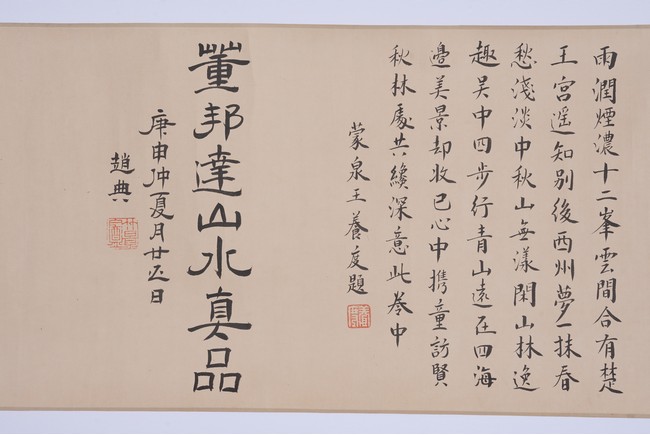 雨潤煙濃十二峯雲間合有楚
王宮遥知別後西州夢一抹春
愁淺淡中秋山無漾閑山林逸
趣吴中四步行青山遠在四海
邊美景却收已心中携童訪賢
秋林處共纔深意此卷中
蒙泉王養度題
董邦達山水真品
庚申仲夏月廿五日
趙典